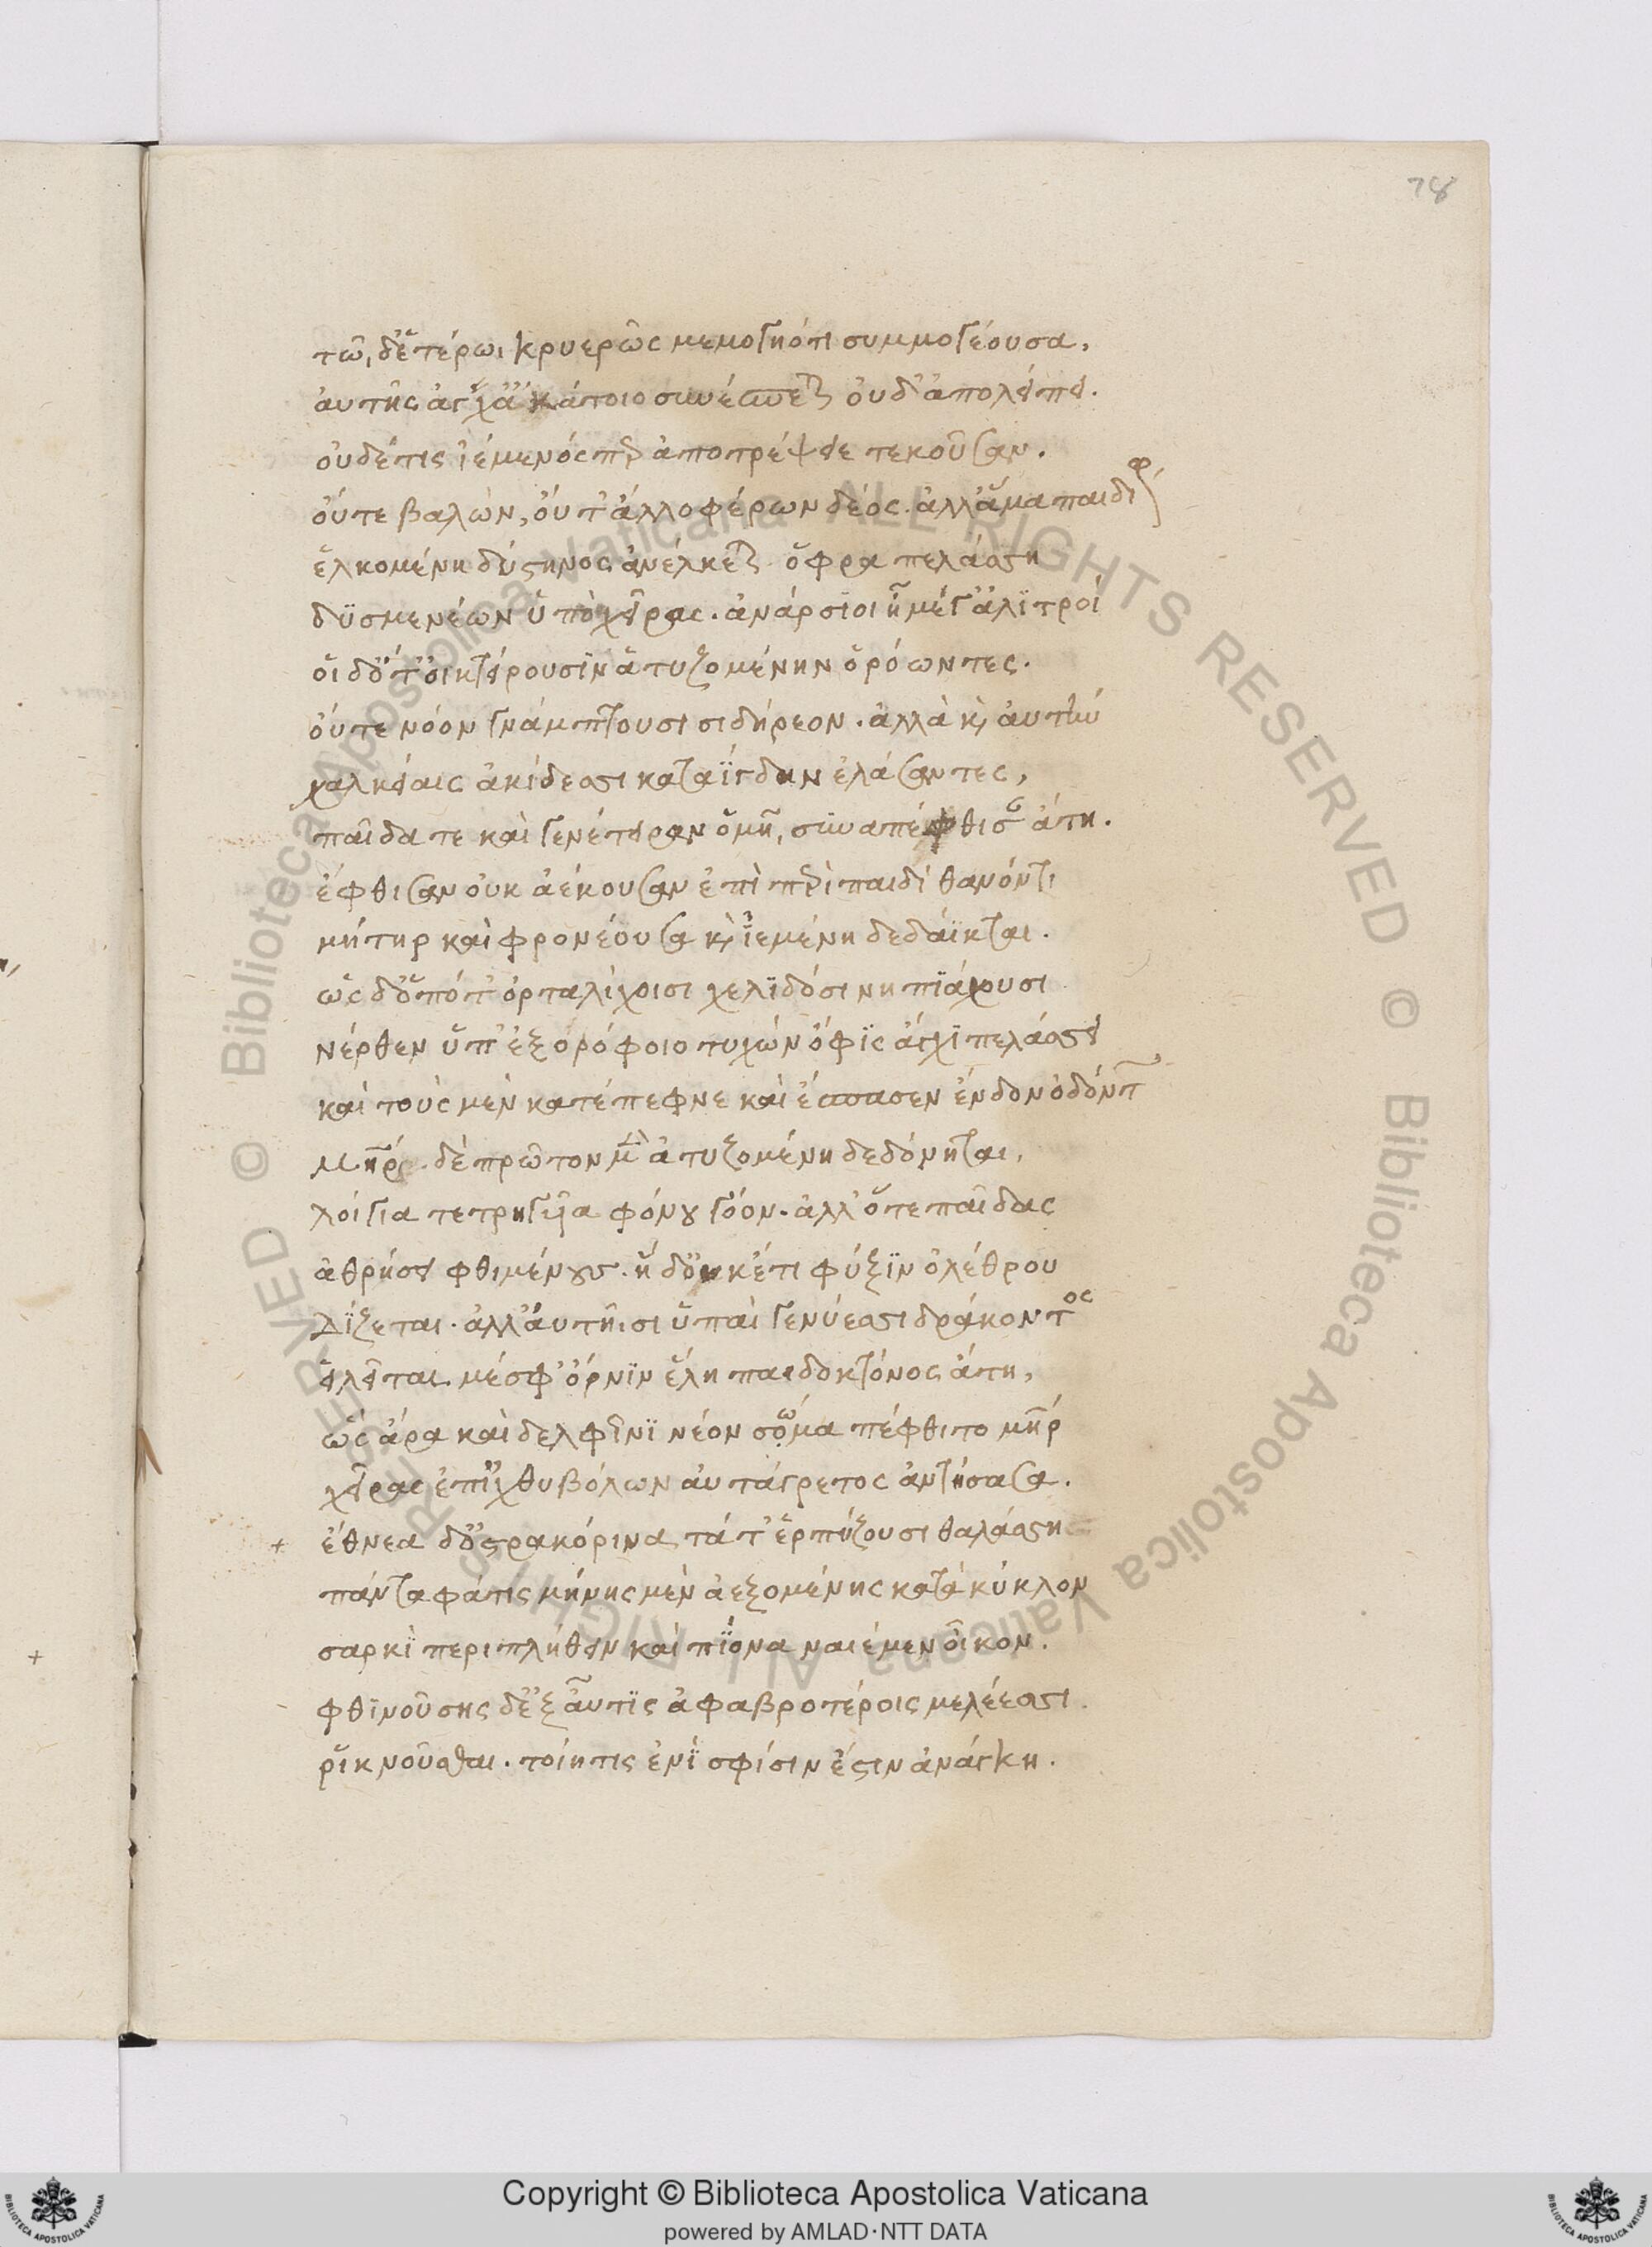 78
τῶι δ' ἑτέρωι κρυερῶς μεμογηότι συμμογέουσα,
αὐτῆς ἄγχ' ἀκάτοιο συνέσπεται οὐδ' ἀπολείπει.
οὐδέ τις ἱέμενός περ ἀποτρέψειε τεκοῦσαν.
οὔτε βαλών, οὔτ' ἄλλο φέρων δέος. ἀλλ' ἅμα παιδὶ
ἑλκομένη δύστηνος ἀνέλκεται ὄφρα πελάσση
δυσμενέων ὑπὸ χεῖρας. ἀνάρσιοι ἦ μέγ' ἀλιτροί
οἳ δ' οὔτ' οἰκτείρουσιν ἀτυζομένην ὁρόωντες.
οὔτε νόον γνάμπτουσι σιδήρεον. ἀλλὰ καὶ αὐτὴν
χαλκείαις ἀκίδεσσι καταΐγδην ἐλάσαντες,
παῖδά τε καὶ γενέτειραν ὁμῆ, συναπέφθισ' ἄτη.
ἔφθισαν οὐκ ἀέκουσαν ἐπὶ περὶ παιδὶ θανόντι
μήτηρ καὶ φρονέουσα καὶ ἱεμένη δεδάϊκται.
ὡς δ' ὁπότ' ὀρταλίχοισι χελιδόσι νηπιάχουσι
νέρθεν ὑπ' ἐξ ὀρόφοιο τυχὼν ὄφις ἄγχι πελάσσει
καὶ τοὺς μὲν κατέπεφνε καὶ ἔσπασεν ἔνδον ὀδόντων
μήτηρ δὲ πρῶτον μὲν ἀτυζομένη δεδόνηται,
λοίγια τετριγυῖα φόνου γόον. ἀλλ' ὅτε παῖδας
ἀθρήσει φθιμένους. ἡ δ' οὐκέτι φύξιν ὀλέθρου
Δίζεται. ἀλλ' αὐτῆισι ὑπαὶ γενύεσσι δράκοντος
εἱλεῖται μέσφ' ὄρνιν ἕλη παιδοκτόνος ἄτη,
ὣς ἄρα καὶ δελφῖνι νέον σῶμα πέφθιτο μήτηρ
χεῖρας ἐπ' ἰχθυβόλων αὐτάγρετος ἀντήσασα.
+ ἔθνεα δ' ὀστρακόρινα τά τ' ἑρπύζουσι θαλάσση
πάντα φάτις μήνης μὲν ἀεξομένης κατὰ κύκλον
σαρκὶ περιπλήθειν καὶ πίονα ναιέμεν οἶκον.
φθινούσης δ' ἐξαῦτις ἀφαβροτέροις μελέεσσι.
ῥικνοῦσθαι. τοίη τις ἐνὶ σφίσιν ἔστιν ἀνάγκη.
+
© Biblioteca Apostolica Vaticana ALL RIGHTS RESERVED © Biblioteca Apostolica Vaticana ALL RIGHTS RESERVED
Copyright © Biblioteca Apostolica Vaticana
powered by AMLAD·NTT DATA
BIBLIOTECA APOSTOLICA VATICANA
BIBLIOTECA APOSTOLICA VATICANA